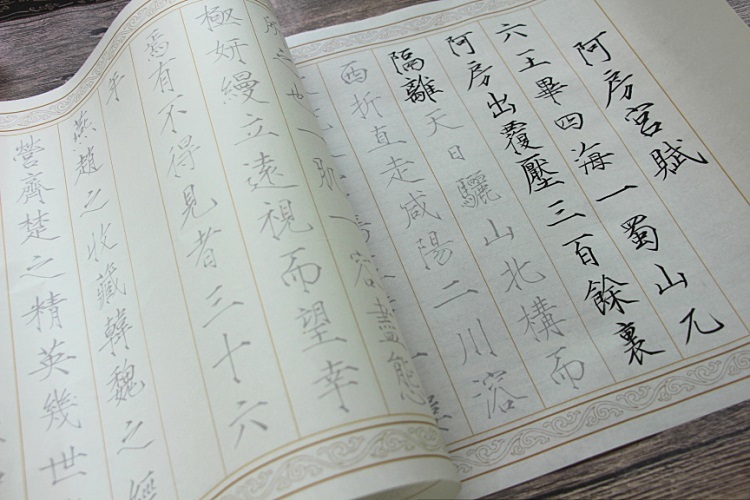 阿房宮賦
六王畢四海一蜀山兀
阿房出覆壓三百餘裏
隔離天日驪山北構而
西折直走咸陽二川溶
所之也一肌一容盡態
極妍縵立遠視而望幸
焉有不得見者三十六
年
燕趙之收藏韓魏之經
營齊楚之精英幾世